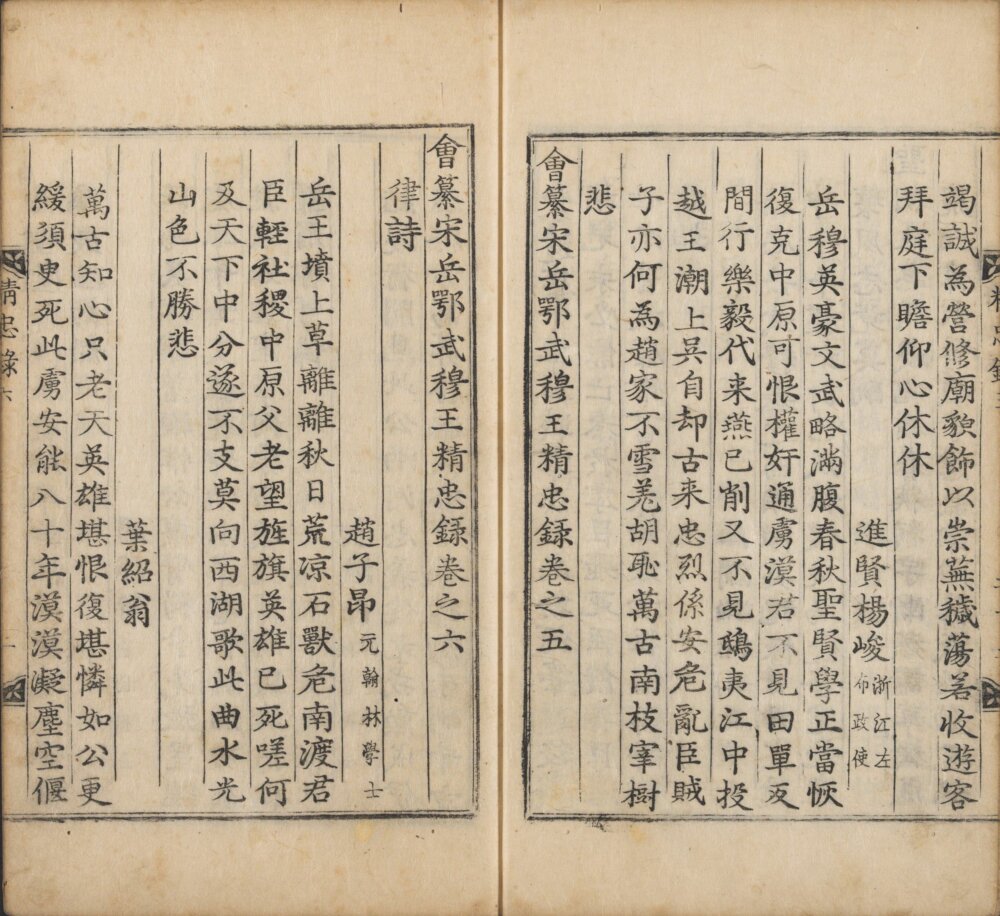 竭誠為營修廟貌飾以崇蕪穢蕩若收遊客
拜庭下瞻仰心休休
進賢楊峻浙江左布政使
岳穆英豪文武略滿腹春秋聖賢學正當恢
復克中原可恨權奸通虜漠君不見田單反
間行樂毅代来燕已削又不見鴟夷江中投
越王潮上吳自却古来忠烈係安危亂臣賊
子亦何為趙家不雪羗胡恥萬古南枝宰樹
悲
會纂宋岳鄂武穆王精忠録卷之五
會纂宋岳鄂武穆王精忠録卷之六
律詩
趙子昂元翰林學士
岳王墳上草離離秋日荒凉石獸危南渡君
臣輕社稷中原父老望旌旗英雄已死嗟何
及天下中分遂不支莫向西湖歌此曲水光
山色不勝悲
葉紹翁
萬古知心只老天英雄堪恨復堪憐如公更
緩須臾死此虜安能八十年漠漠凝塵空偃
精忠錄六